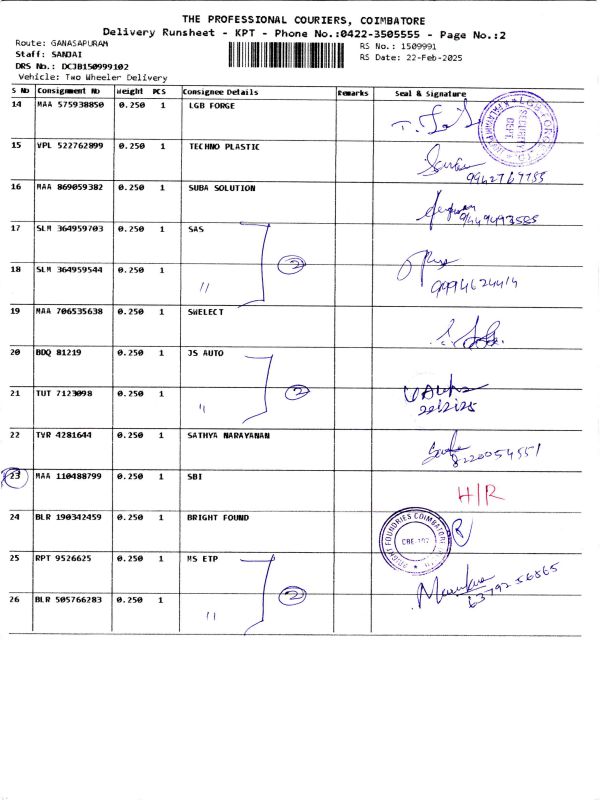 THE PROFESSIONAL COURIERS, COIMBATORE
Delivery Runsheet - KPT - Phone No.:0422-3505555 - Page No.:2
Route: GANASAPURAM
RS No.: 1509991
Staff: SANDAI
RS Date: 22-Feb-2025
DRS No.: DCJB150999102
Vehicle: Two Wheeler Delivery
S No Consignment No Weight PCS Consignee Details Remarks Seal & Signature
14 MAA 575938850 0.250 1 LGB FORGE
SECURITY DEPT
15 VPL 522762899 0.250 1 TECHNO PLASTIC
9942767755
16 MAA 869059382 0.250 1 SUBA SOLUTION
9449493585
17 SLM 364959703 0.250 1 SAS
2
18 SLM 364959544 0.250 1 "
9994624414
19 MAA 706535638 0.250 1 SWELECT
20 BDQ 81219 0.250 1 JS AUTO
2
21 TUT 7123098 0.250 1 "
22/2/25
22 TVR 4281644 0.250 1 SATHYA NARAYANAN
8220054551
23 MAA 110488799 0.250 1 SBI
H/R
24 BLR 190342459 0.250 1 BRIGHT FOUND
BRIGHT FOUNDRIES COIMBATORE
25 RPT 9526625 0.250 1 MS ETP
2
26 BLR 505766283 0.250 1 "
6379256565